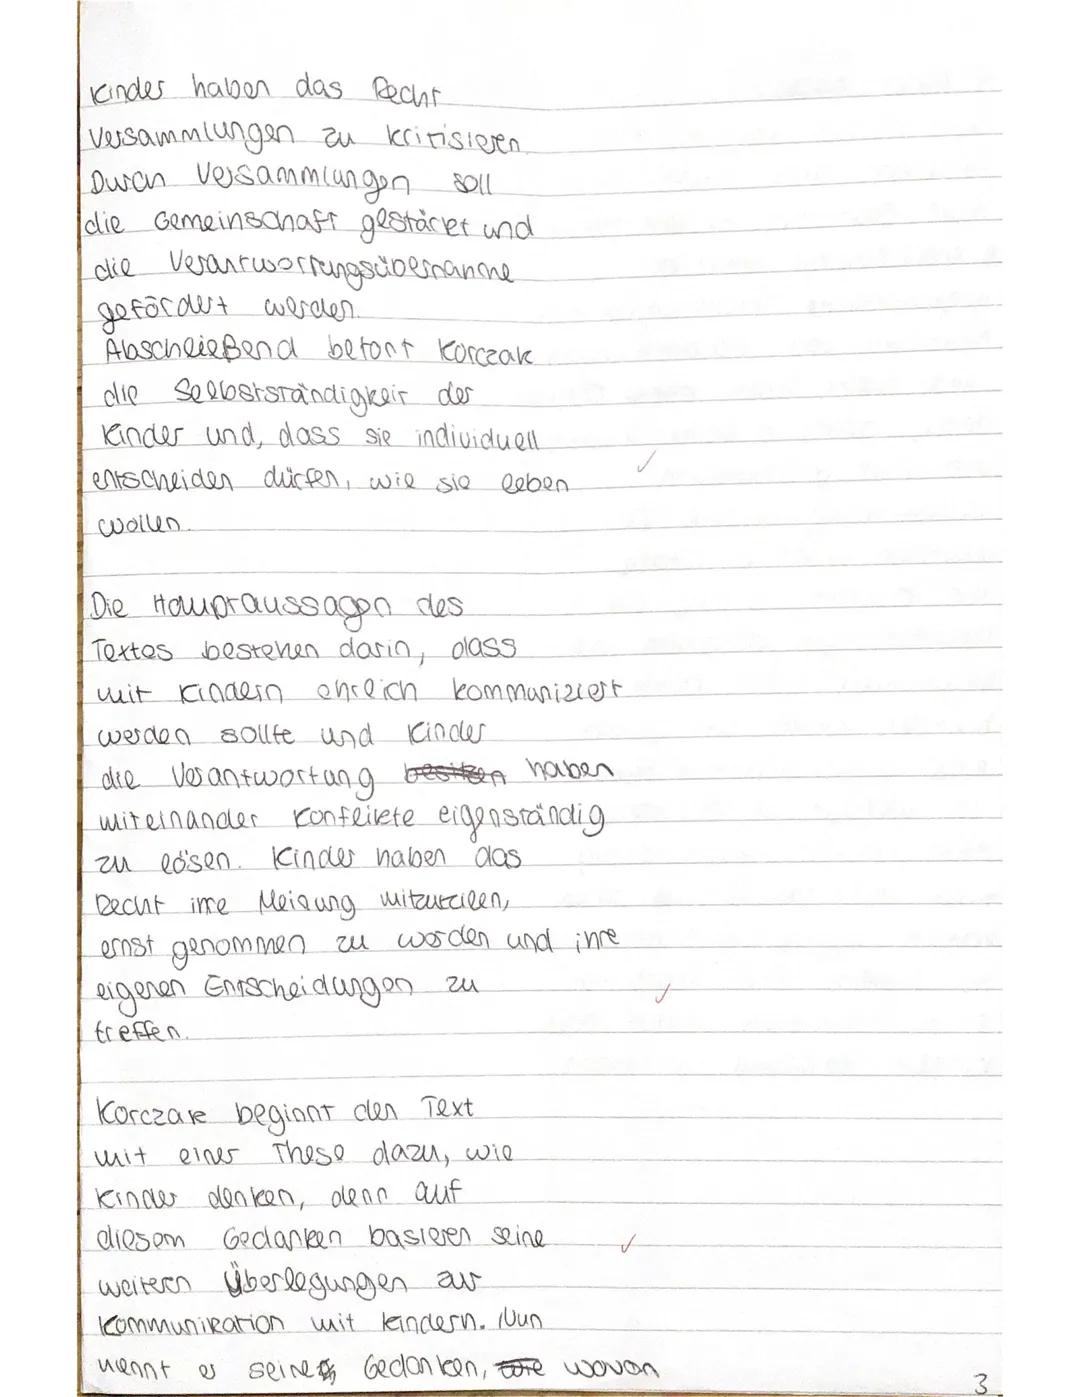 Kinder haben das Recht
Versammlungen zu kritisieren.
Durch Versammlungen soll
die Gemeinschaft gestärkt und
die Verantwortungsübernahme
gefördert werden.
Abschließend betont Korczak
die Selbstständigkeit der
Kinder und, dass sie individuell
entscheiden dürfen, wie sie leben
wollen.
Die Hauptaussagen des
Textes bestehen darin, dass
mit Kindern ehrlich kommuniziert
werden sollte und Kinder
die Verantwortung besitzen haben
miteinander Konflikte eigenständig
zu lösen. Kinder haben das
Recht ihre Meinung mitzuteilen,
ernst genommen zu werden und ihre
eigenen Entscheidungen zu
treffen.
Korczak beginnt den Text
mit einer These dazu, wie
Kinder denken, denn auf
diesem Gedanken basieren seine
weitern Überlegungen zur
Kommunikation mit Kindern. Nun
nennt er seine Gedanken, wovon
3